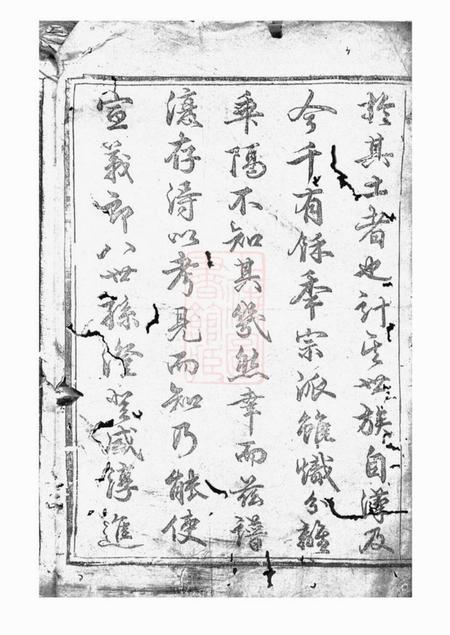 於其土者也計其世族自漙及
今千有餘年宗派雖熾分離
乖隔不知其幾然幸而茲譜
復存得以考見而知乃能使
宣義郎八世孫澄登咸淳進